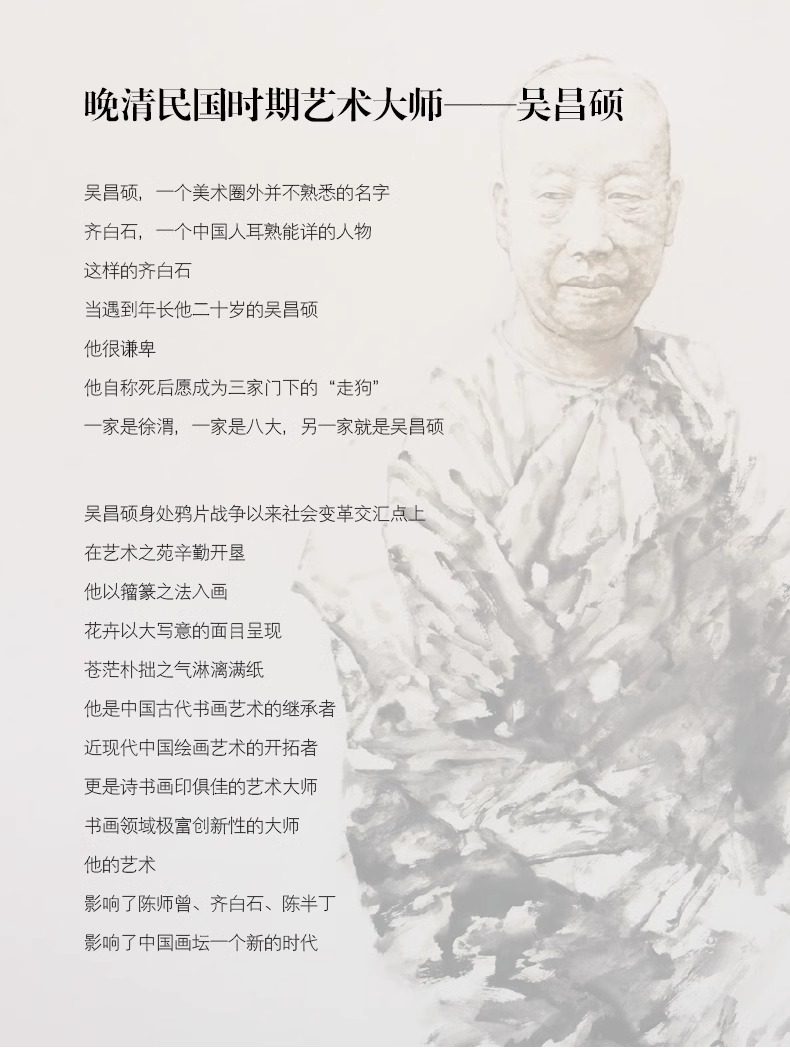 晚清民国时期艺术大师——吴昌硕
吴昌硕，一个美术圈外并不熟悉的名字
齐白石，一个中国人耳熟能详的人物
这样的齐白石
当遇到年长他二十岁的吴昌硕
他很谦卑
他自称死后愿成为三家门下的“走狗”
一家是徐渭，一家是八大，另一家就是吴昌硕
吴昌硕身处鸦片战争以来社会变革交汇点上
在艺术之苑辛勤开垦
他以籀篆之法入画
花卉以大写意的面目呈现
苍茫朴拙之气淋漓满纸
他是中国古代书画艺术的继承者
近现代中国绘画艺术的开拓者
更是诗书画印俱佳的艺术大师
书画领域极富创新性的大师
他的艺术
影响了陈师曾、齐白石、陈半丁
影响了中国画坛一个新的时代